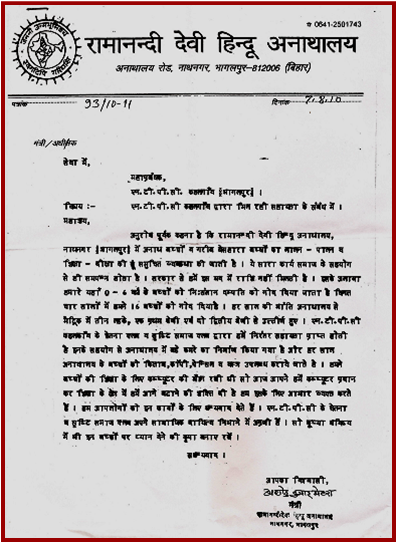 ☎ 0641-2501743
रामानन्दी देवी हिन्दू अनाथालय
अनाथालय रोड, नाथनगर, भागलपुर–812006 (बिहार)
पत्रांक 93/10-11 दिनांक 7.8.10
मंत्री/अधीक्षक
सेवा में,
महाप्रबंधक,
एन.टी.पी.सी. कहलगाँव [भागलपुर] ।
विषय :- एन.टी.पी.सी. कहलगाँव द्वारा मिल रही सहायता के संबंध में ।
महाशय,
अनुरोध पूर्वक कहना है कि रामानन्दी देवी हिन्दू अनाथालय,
नाथनगर [भागलपुर] में अनाथ बच्चों व गरीब बेसहारा बच्चों का लालन - पालन व
शिक्षा - दीक्षा की सुसमुचित व्यवस्था की जाती है । ये सारा कार्य समाज के सहयोग
से ही सम्पन्न होता है । सरकार से हमें इस मद में राशि नहीं मिलती है । इसके अलावा
हमारे यहाँ 0 - 6 वर्ष के बच्चों को निःसंतान दम्पति को गोद दिया जाता है विगत
चार सालों में हमने 16 बच्चों को गोद दिया है । हर साल की भाँति अनाथालय से
मैट्रिक में तीन लड़के, एक प्रथम श्रेणी एवं दो द्वितीय श्रेणी से उत्तीर्ण हुए । एन.टी.पी.सी
कहलगाँव के चेतना क्लब व सृष्टि समाज क्लब द्वारा हमें निरंतर सहायता प्राप्त होती
है इनके सहयोग से अनाथालय में बड़े कमरे का निर्माण किया गया है और हर साल
अनाथालय के बच्चों को किताब,कॉपी,पेन्सिल व वस्त्र उपलब्ध कराये जाते है । हमने
बच्चों की शिक्षा के लिए कम्प्यूटर की माँग रखी थी सो आज आपने हमें कम्प्यूटर प्रदान
कर शिक्षा के क्षेत्र में हमें आगे बढ़ाने की शक्ति दी है हम इसके लिए आभार व्यक्त करते
हैं । हम आपलोगों को इस कार्य के लिए धन्यवाद देते हैं । एन.टी.पी.सी. के चेतना
व सृष्टि समाज क्लब अपने सामाजिक दायित्व निभाने में अग्रणी हैं । सो कृपया भविष्य
में भी इन बच्चों पर ध्यान देने की कृपा बनाए रखें ।
सधन्यवाद ।
आपका विश्वासी,
मंत्री
रामानन्दी देवी हिन्दू अनाथालय
नाथनगर, भागलपुर